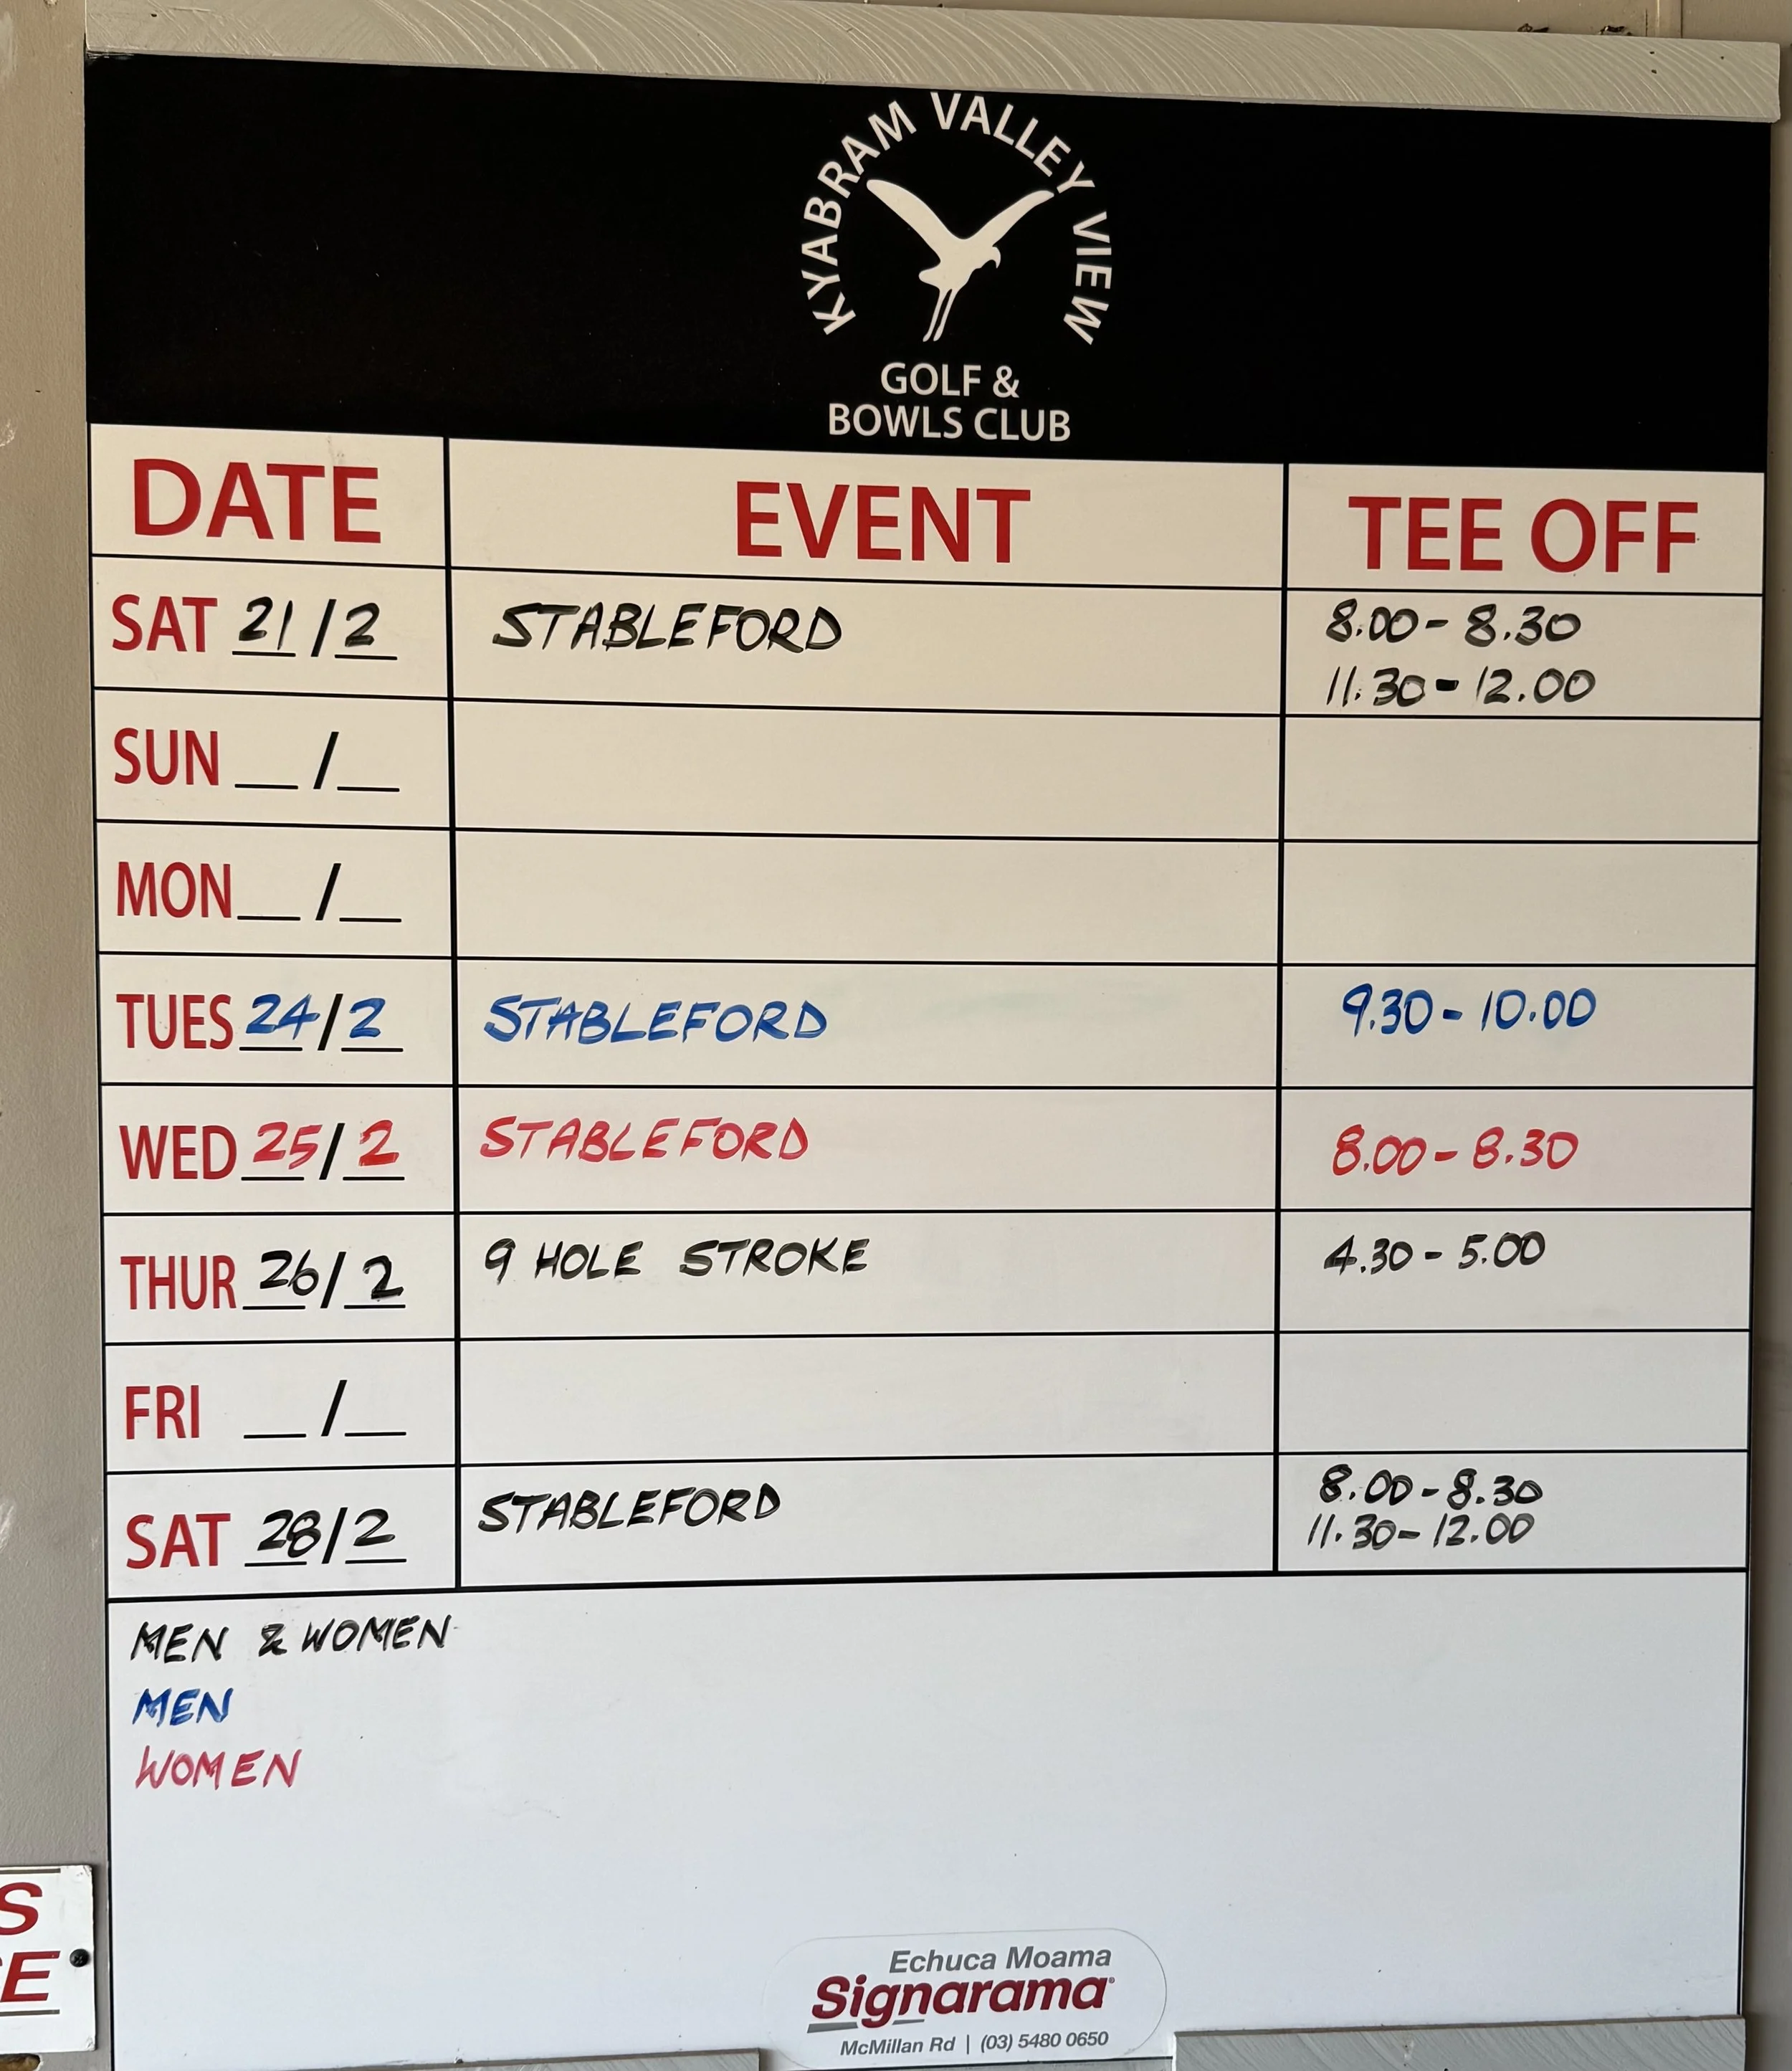 KYABRAM VALLEY VIEW
GOLF &
BOWLS CLUB
DATE EVENT TEE OFF
SAT 21/2 STABLEFORD 8.00 - 8.30
11.30 - 12.00
SUN __/__
MON __/__
TUES 24/2 STABLEFORD 9.30 - 10.00
WED 25/2 STABLEFORD 8.00 - 8.30
THUR 26/2 9 HOLE STROKE 4.30 - 5.00
FRI __/__
SAT 28/2 STABLEFORD 8.00 - 8.30
11.30 - 12.00
MEN & WOMEN
MEN
WOMEN
S
E
Echuca Moama
Signarama
McMillan Rd | (03) 5480 0650